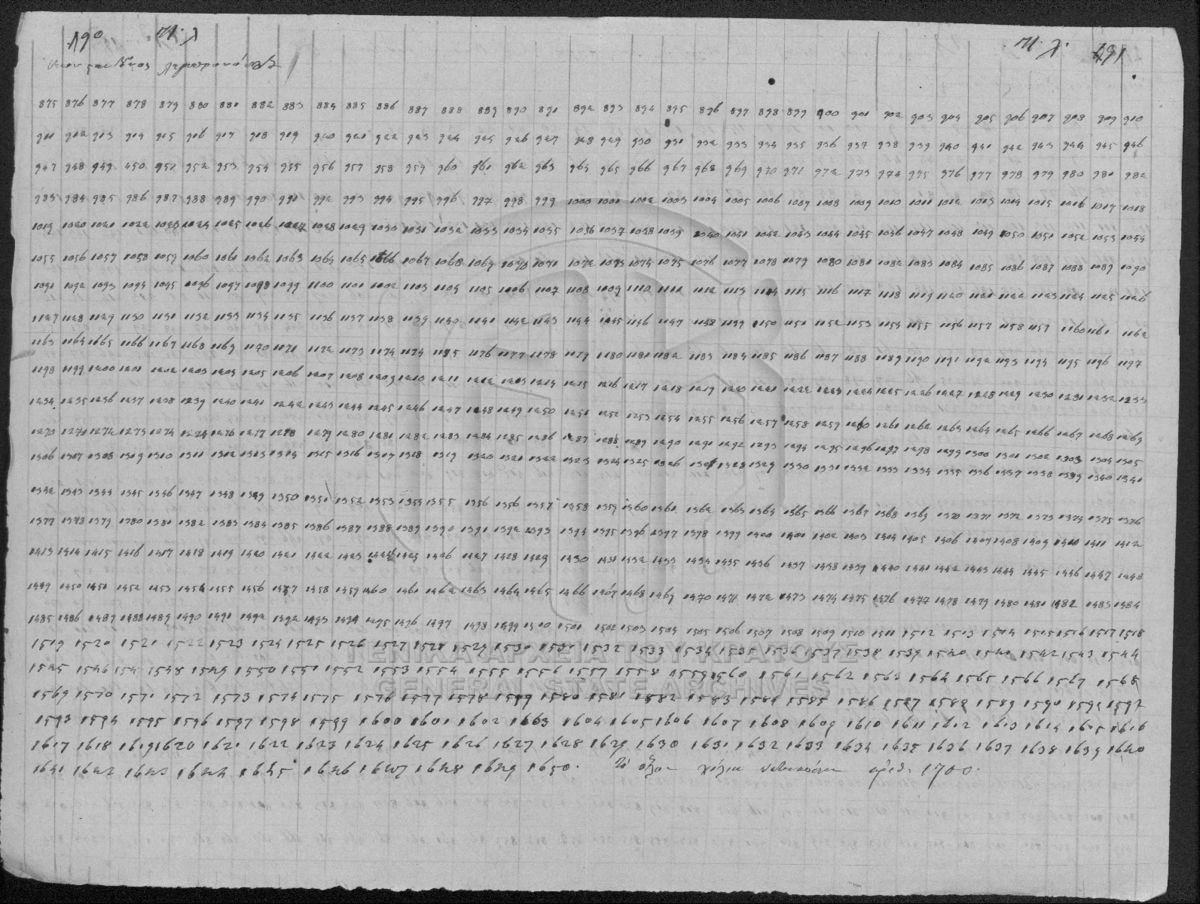 190 Π. Χ Π. Χ. 191
875 876 877 878 879 880 881 882 883 884 885 886 887 888 889 890 891 892 893 894 895 896 897 898 899 900 901 902 903 904 905 906 907 908 909 910
911 912 913 914 915 916 917 918 919 920 921 922 923 924 925 926 927 928 929 930 931 932 933 934 935 936 937 938 939 940 941 942 943 944 945 946
947 948 949 450 951 952 953 954 955 956 957 958 959 960 961 962 963 964 965 966 967 968 969 970 971 972 973 974 975 976 977 978 979 980 981 982
983 984 985 986 987 988 989 990 991 992 993 994 995 996 997 998 999 1000 1001 1002 1003 1004 1005 1006 1007 1008 1009 1010 1011 1012 1013 1014 1015 1016 1017 1018
1019 1020 1021 1022 1023 1024 1025 1026 1027 1028 1029 1030 1031 1032 1033 1034 1035 1036 1037 1038 1039 1040 1041 1042 1043 1044 1045 1046 1047 1048 1049 1050 1051 1052 1053 1054
1055 1056 1057 1058 1059 1060 1061 1062 1063 1064 1065 1066 1067 1068 1069 1070 1071 1072 1073 1074 1075 1076 1077 1078 1079 1080 1081 1082 1083 1084 1085 1086 1087 1088 1089 1090
1091 1092 1093 1094 1095 1096 1097 1098 1099 1100 1101 1102 1103 1104 1105 1106 1107 1108 1109 1110 1111 1112 1113 1114 1115 1116 1117 1118 1119 1120 1121 1122 1123 1124 1125 1126
1127 1128 1129 1130 1131 1132 1133 1134 1135 1136 1137 1138 1139 1140 1141 1142 1143 1144 1145 1146 1147 1148 1149 1150 1151 1152 1153 1154 1155 1156 1157 1158 1159 1160 1161 1162
1163 1164 1165 1166 1167 1168 1169 1170 1171 1172 1173 1174 1174 1175 1176 1177 1178 1179 1180 1181 1182 1183 1184 1185 1186 1187 1188 1189 1190 1191 1192 1193 1194 1195 1196 1197
1198 1199 1200 1201 1202 1203 1204 1205 1206 1207 1208 1209 1210 1211 1212 1213 1214 1215 1216 1217 1218 1219 1220 1221 1222 1223 1224 1225 1226 1227 1228 1229 1230 1231 1232 1233
1234 1235 1236 1237 1238 1239 1240 1241 1242 1243 1244 1245 1246 1247 1248 1249 1250 1251 1252 1253 1254 1255 1256 1257 1258 1259 1260 1261 1262 1263 1264 1265 1266 1267 1268 1269
1270 1271 1272 1273 1274 1275 1276 1277 1278 1279 1280 1281 1282 1283 1284 1285 1286 1287 1288 1289 1290 1291 1292 1293 1294 1295 1296 1297 1298 1299 1300 1301 1302 1303 1304 1305
1306 1307 1308 1309 1310 1311 1312 1313 1314 1315 1316 1317 1318 1319 1320 1321 1322 1323 1324 1325 1326 1327 1328 1329 1330 1331 1332 1333 1334 1335 1336 1337 1338 1339 1340 1341
1342 1343 1344 1345 1346 1347 1348 1349 1350 1351 1352 1353 1354 1355 1356 1356 1357 1358 1359 1360 1361 1362 1363 1364 1365 1366 1367 1368 1369 1370 1371 1372 1373 1374 1375 1376
1377 1378 1379 1380 1381 1382 1383 1384 1385 1386 1387 1388 1389 1390 1391 1392 1393 1394 1395 1396 1397 1398 1399 1400 1401 1402 1403 1404 1405 1406 1407 1408 1409 1410 1411 1412
1413 1414 1415 1416 1417 1418 1419 1420 1421 1422 1423 1424 1425 1426 1427 1428 1429 1430 1431 1432 1433 1434 1435 1436 1437 1438 1439 1440 1441 1442 1443 1444 1445 1446 1447 1448
1449 1450 1451 1452 1453 1454 1455 1456 1457 1458 1459 1460 1461 1462 1463 1464 1465 1466 1467 1468 1469 1470 1471 1472 1473 1474 1475 1476 1477 1478 1479 1480 1481 1482 1483 1484
1485 1486 1487 1488 1489 1490 1491 1492 1493 1494 1495 1496 1497 1498 1499 1500 1501 1502 1503 1504 1505 1506 1507 1508 1509 1510 1511 1512 1513 1514 1515 1516 1517 1518
1519 1520 1521 1522 1523 1524 1525 1526 1527 1528 1529 1530 1531 1532 1533 1534 1535 1536 1537 1538 1539 1540 1541 1542 1543 1544
ΓΕΝΙΚΑ ΑΡΧΕΙΑ ΤΟΥ ΚΡΑΤΟΥΣ
1545 1546 1547 1548 1549 1550 1551 1552 1553 1554 1555 1556 1557 1558 1559 1560 1561 1562 1563 1564 1565 1566 1567 1568
GENERAL STATE ARCHIVES
1569 1570 1571 1572 1573 1574 1575 1576 1577 1578 1579 1580 1581 1582 1583 1584 1585 1586 1587 1588 1589 1590 1591 1592
1593 1594 1595 1596 1597 1598 1599 1600 1601 1602 1603 1604 1605 1606 1607 1608 1609 1610 1611 1612 1613 1614 1615 1616
1617 1618 1619 1620 1621 1622 1623 1624 1625 1626 1627 1628 1629 1630 1631 1632 1633 1634 1635 1636 1637 1638 1639 1640
1641 1642 1643 1644 1645 1646 1647 1648 1649 1650. Το όλον χίλια αριθ. 1700.